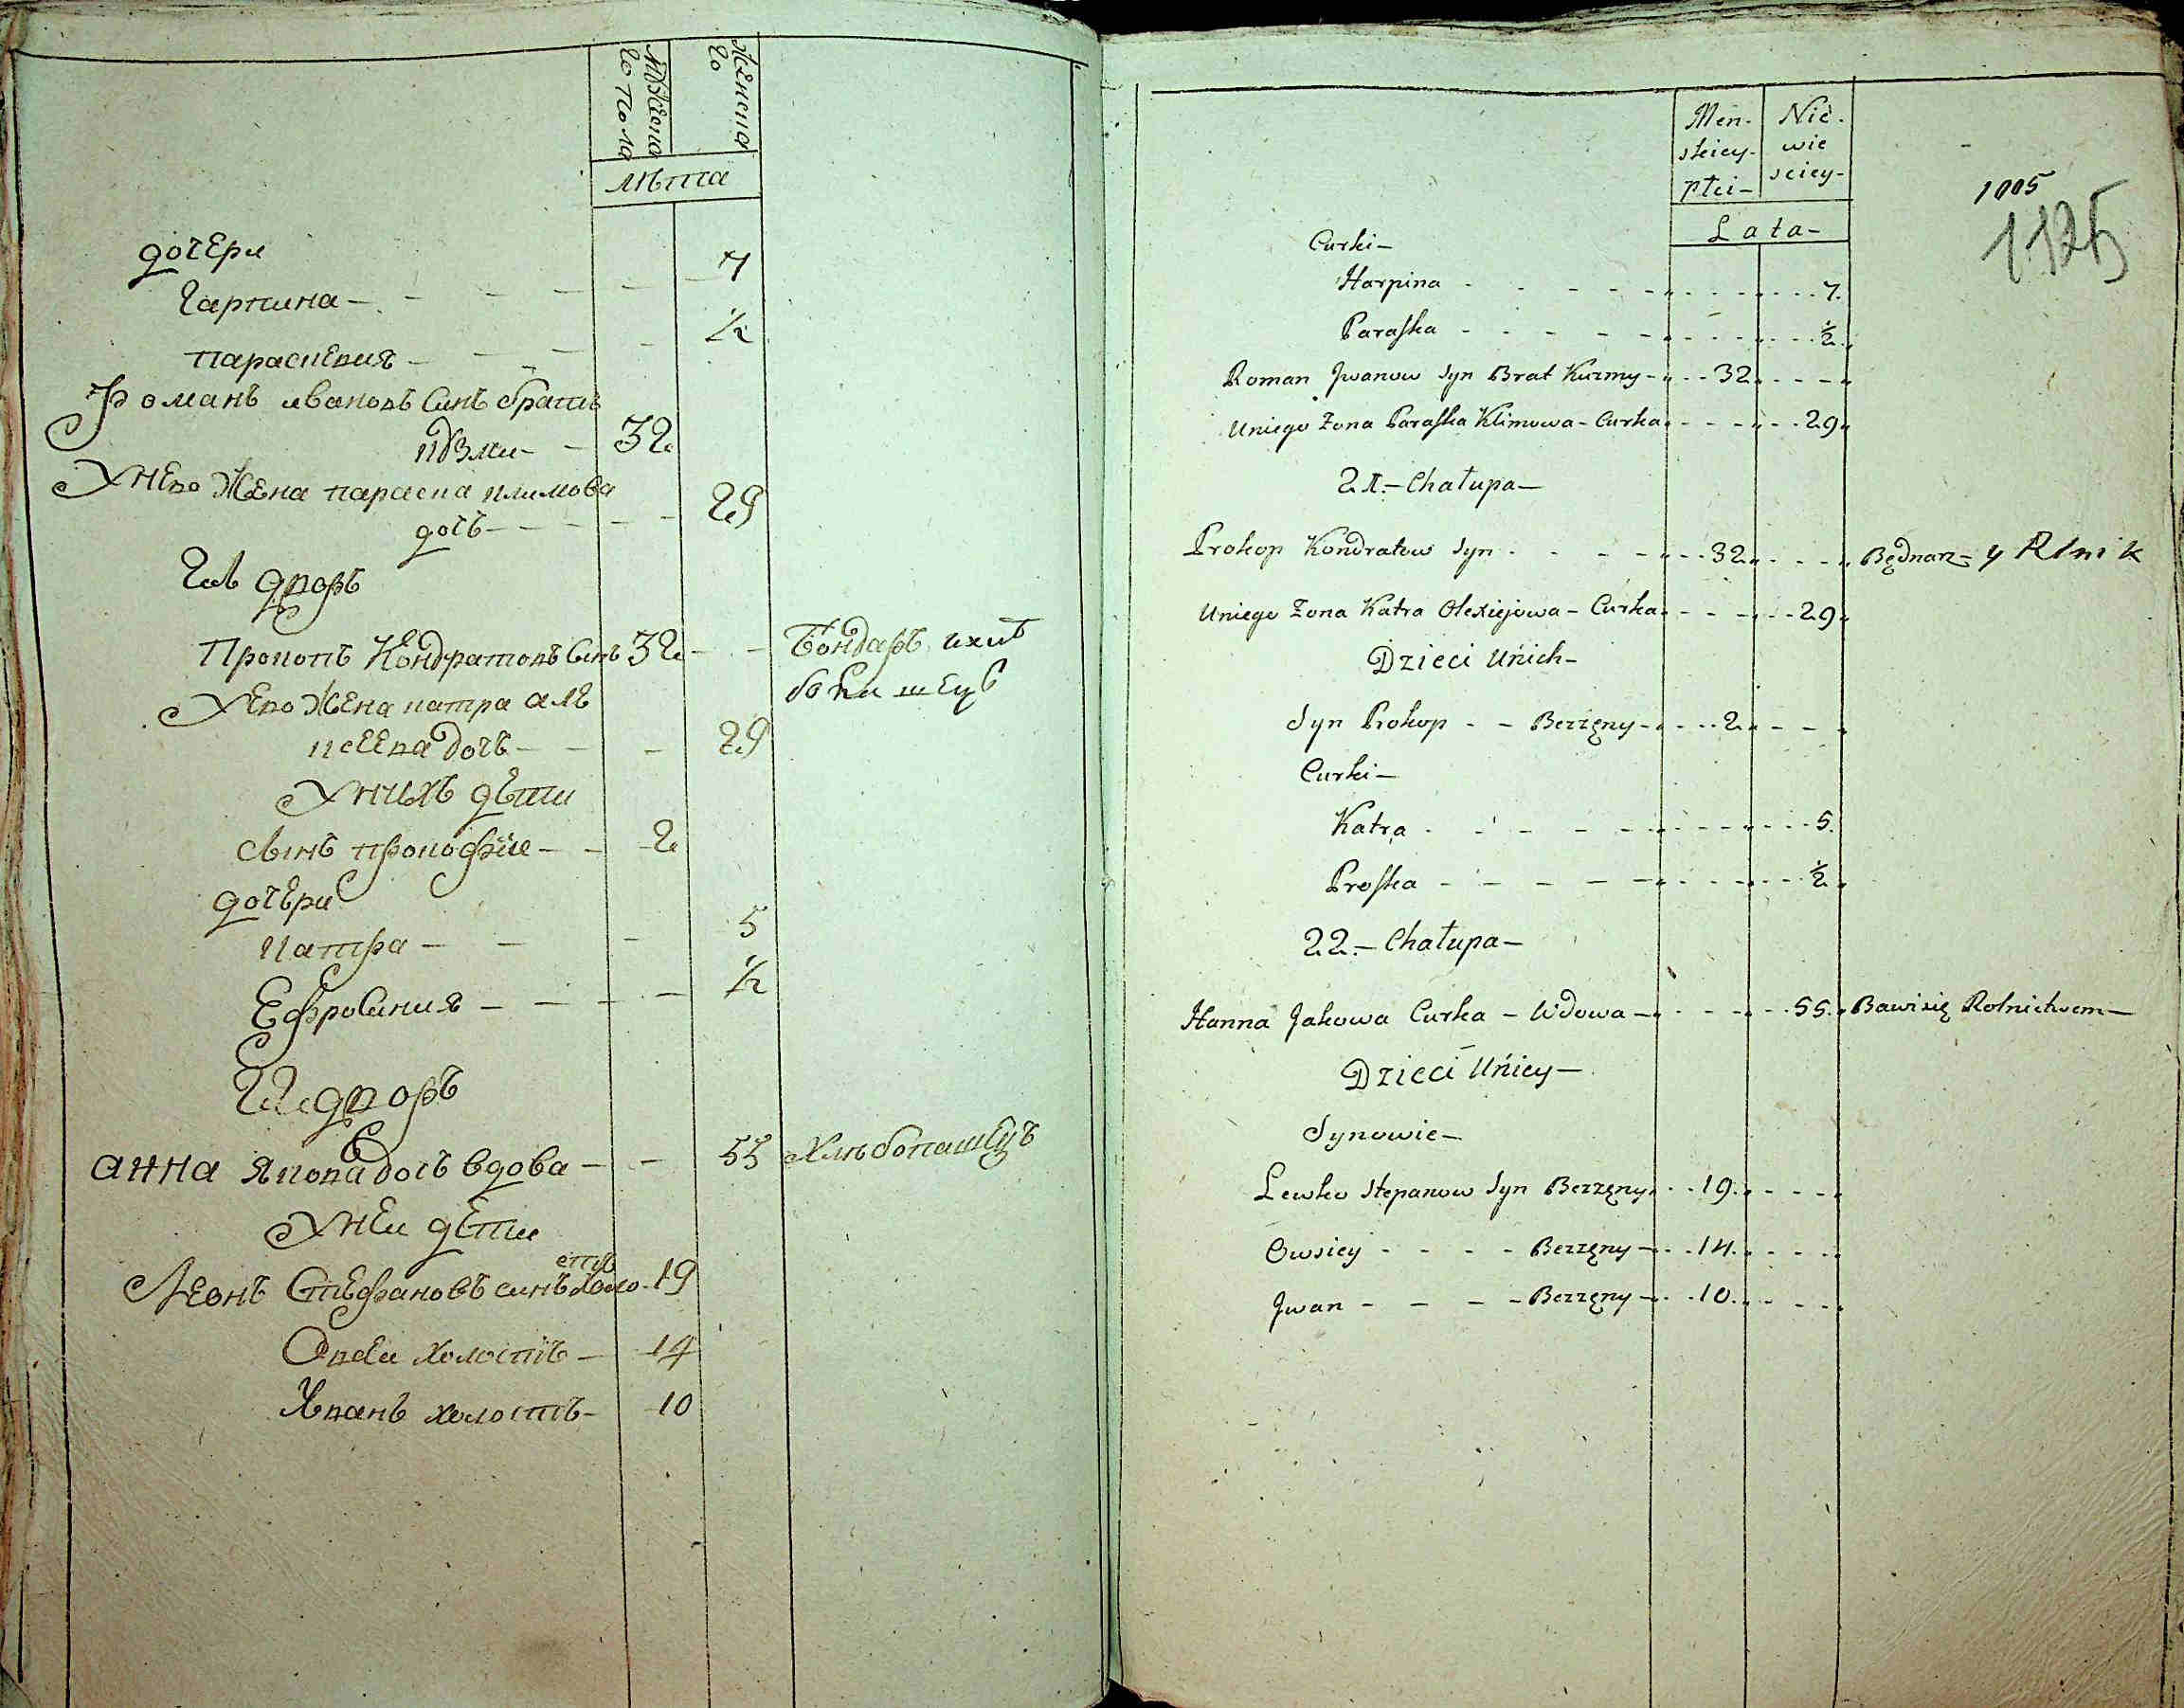 мужеска
го пола
женска
го
лѣта
дочери
Гарпина - - - - - 7
Параскевия - - - - ½
Романъ ивановъ синъ братъ
кузми - - 32
Унево жена параска климова
дочь - - - - - 29
21 дворъ
Прокопъ Кондратовъ синъ 32 - - Бондаръ ихлѣ
бопашецъ
Уево жена катра але
ксеева дочь - - - 29
Унихъ дѣти
сынъ прокофіи - - 2
дочери
катра - - - 5
Ефросиния - - - - ½
22 дворъ
анна якова дочь вдова - - 55 Хлѣбопашецъ
Унеи дети
Леонъ Стефановъ синъ холо 19
стъ
Овсеи холостъ - 14
Иванъ холостъ - 10
Męn-
skiey-
płci-
Nie-
wie
sciey-
Lata-
1005
1125
Curki-
Harpina - - - - - 7.
Paraska - - - - - ½
Roman Jwanow Syn Brat Kuzmy - 32
Uniego Żona Paraska Klimowa - Curka - - - 29
21.- Chałupa-
Prokop Kondratow Syn - - - - 32 - - Bednarz - y Rlnik
Uniego Żona Katra Olexiejowa - Curka - - - 29
Dzieci Unich-
Syn Prokop - - Bezzęny - 2 - -
Curki-
Katra - - - - - 5.
Proska - - - - - ½
22.- Chałupa-
Hanna Jakowa Curka - Wdowa - - - 55. Bawi się Rolnictwem-
Dzieci Uniey-
Synowie-
Lewko Stepanow Syn Bezzęny - 19. - -
Owsiey - - - - Bezzęny - 14. - -
Jwan - - - - Bezzęny - 10. - -